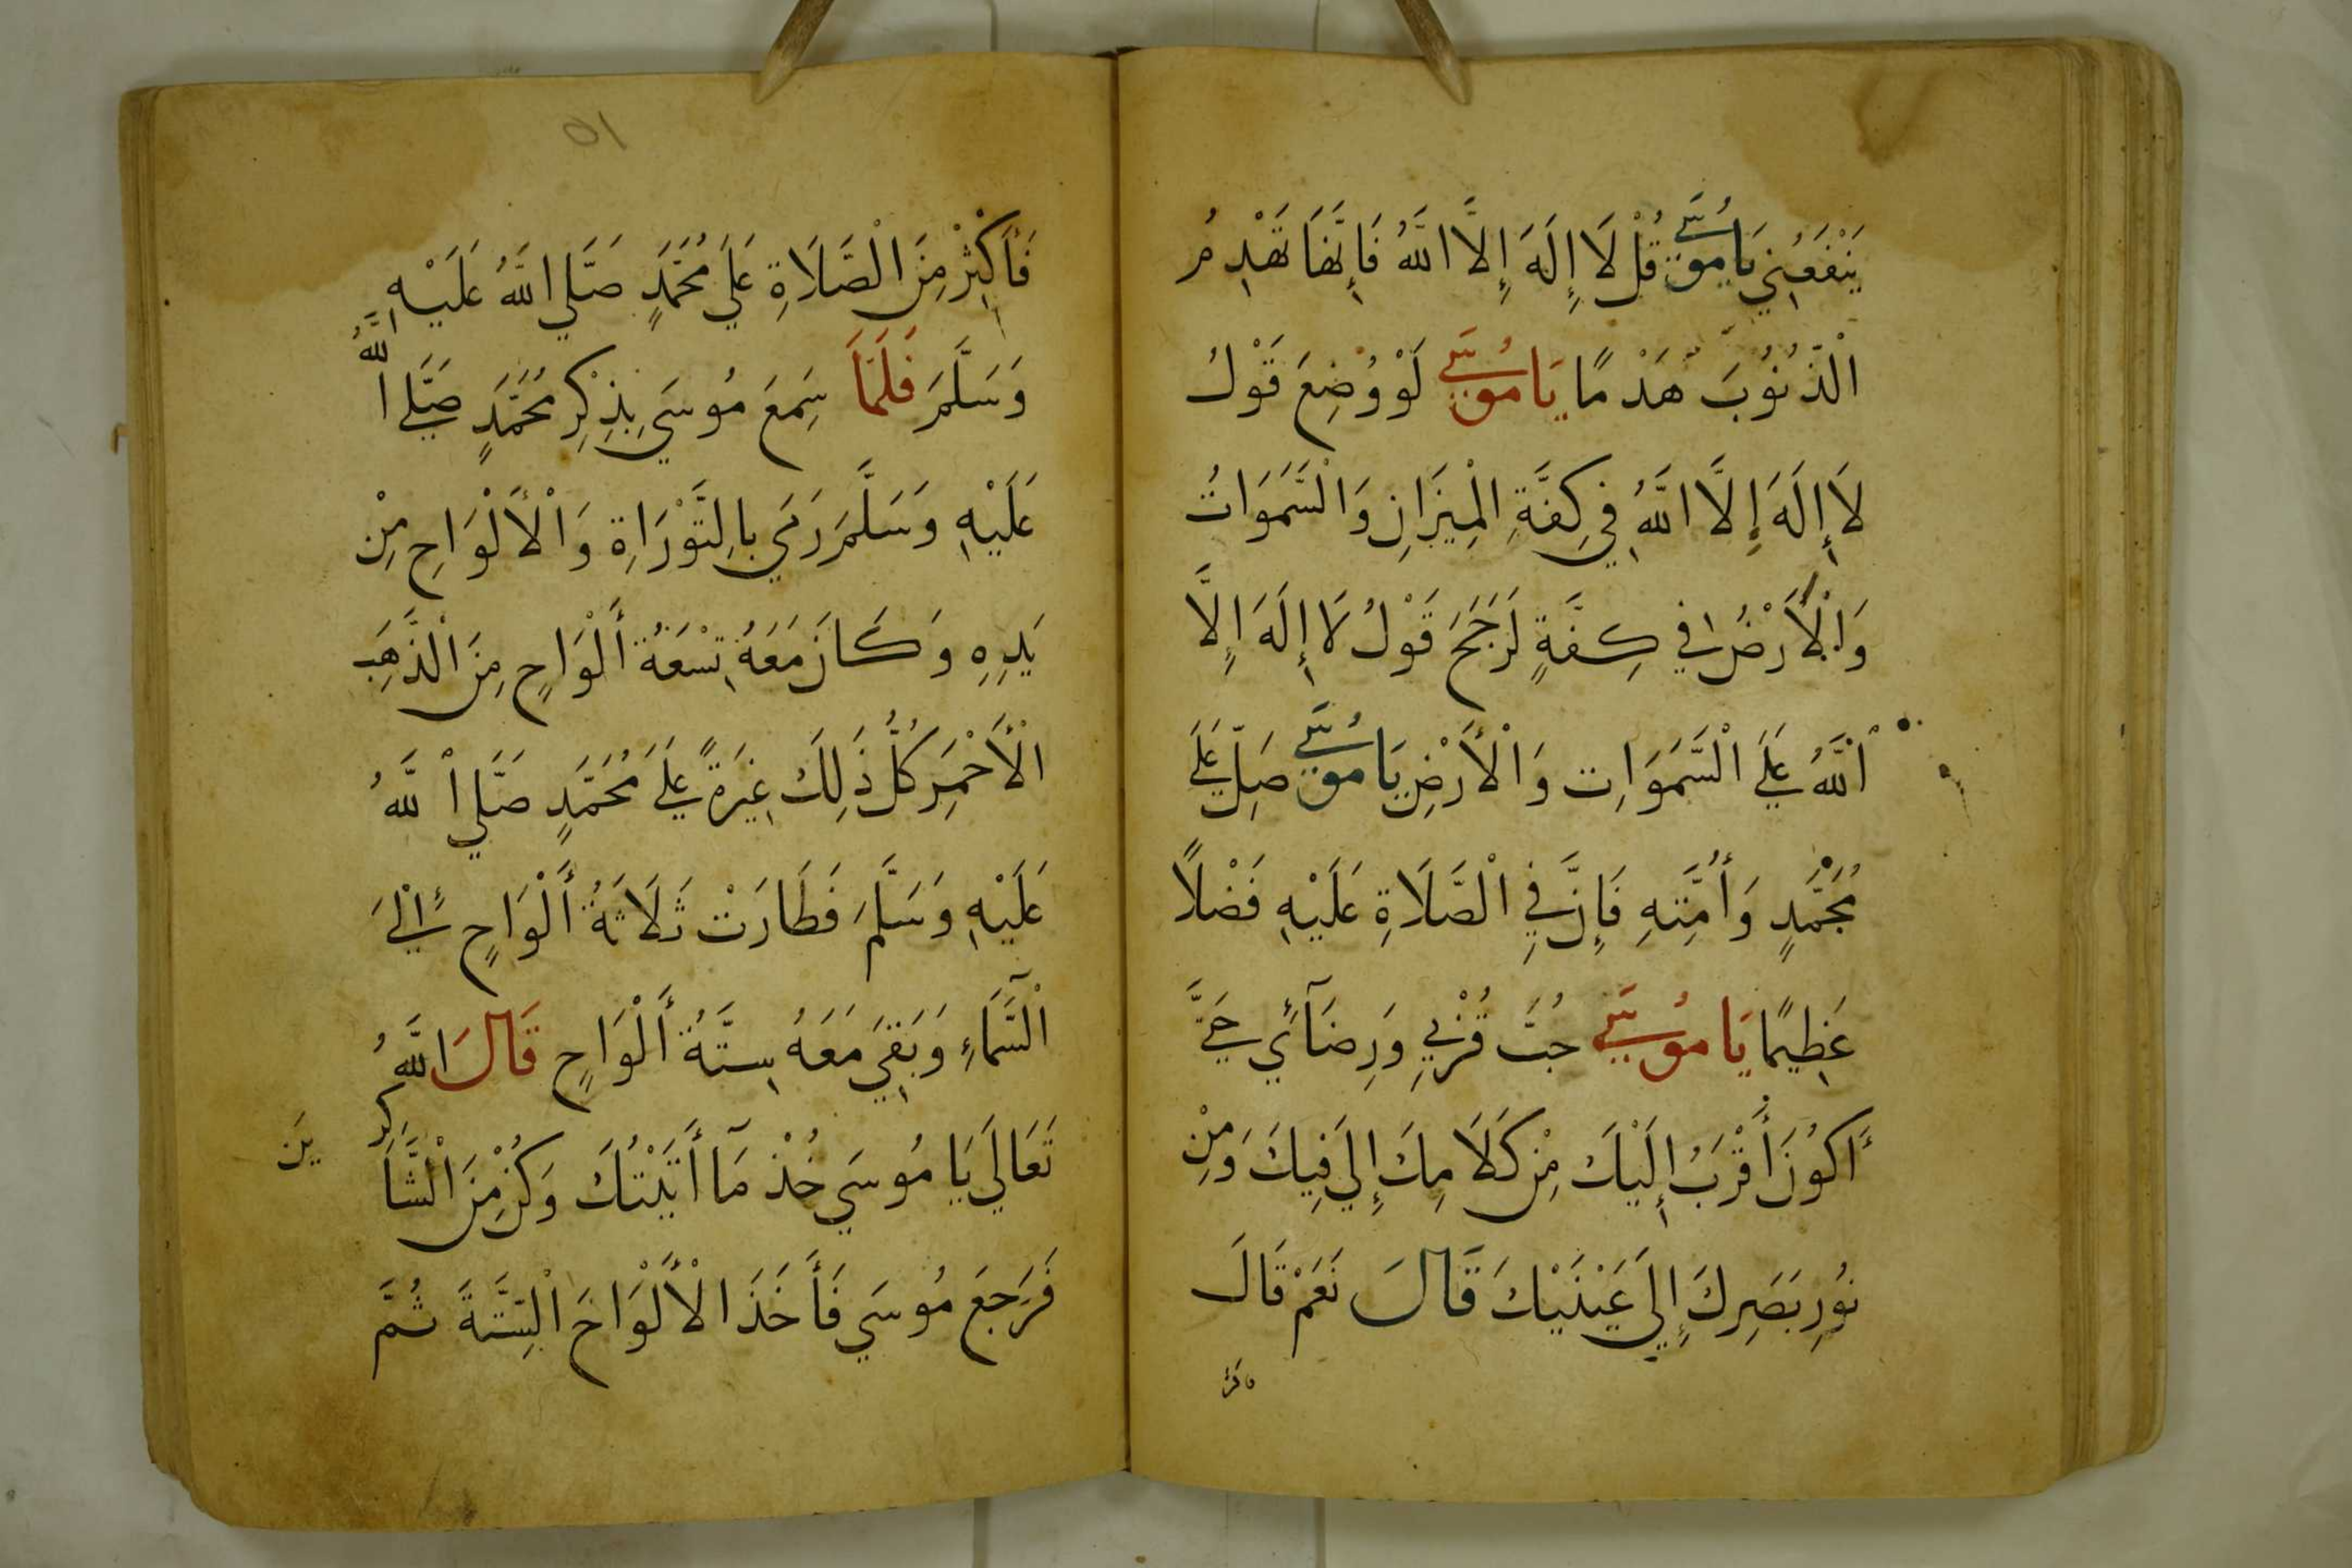 يَنْفَعُنِي يَا مُوسَي قُلْ لَا إِلَهَ إِلَّا اللَّهُ فَإِنَّهَا تَهْدِمُ
الْذُّنُوبَ هَدْمًا يَا مُوسَي لَوْ وُضِعَ قَوْلُ
لَا إِلَهَ إِلَّا اللَّهُ فِي كِفَّةِ الْمِيزَانِ وَالْسَّمَوَاتُ
وَالْأَرْضُ فِي كِفَّةٍ لَرَجَحَ قَوْلُ لَا إِلَهَ إِلَّا
اللَّهُ عَلَي الْسَّمَوَاتِ وَالْأَرْضِ يَا مُوسَي صَلِّ عَلَي
مُحَمَّدٍ وَأُمَّتِهِ فَإِنَّ فِي الْصَّلَاةِ عَلَيْهِ فَضْلًا
عَظِيمًا يَا مُوسَي حُبَّ قُرْبِي وَرِضَآئِي حَتَّي
أَكُونَ أَقْرَبُ إِلَيْكَ مِنْ كَلَامِكَ إِلَي فِيكَ وَمِنْ
نُورِ بَصَرِكَ إِلَي عَيْنَيْكَ قَالَ نَعَمْ قَالَ
فَأَكْثِرْ مِنَ الْصَّلَاةِ عَلَي مُحَمَّدٍ صَلَّي اللَّهُ عَلَيْهِ
وَسَلَّمَ فَلَمَّا سَمِعَ مُوسَي بِذِكْرِ مُحَمَّدٍ صَلَّي اللَّهُ
عَلَيْهِ وَسَلَّمَ رَمَي بِالتَّوْرَاةِ وَالْأَلْوَاحِ مِنْ
يَدِهِ وَكَانَ مَعَهُ تِسْعَةُ أَلْوَاحٍ مِنَ الْذَّهَبِ
الْأَحْمَرِ كُلُّ ذَلِكَ غِيَرَةً عَلَي مُحَمَّدٍ صَلَّي اللَّهُ
عَلَيْهِ وَسَلَّمَ فَطَارَتْ ثَلَاثَةُ أَلْوَاحٍ إِلَي
الْسَّمَاءِ وَبَقِيَ مَعَهُ سِتَّةُ أَلْوَاحٍ قَالَ اللَّهُ
تَعَالَي يَا مُوسَي خُذْ مَآ أَتَيْتُكَ وَكُنْ مِنَ الْشَّاكِرِينَ
فَرَجَعَ مُوسَي فَأَخَذَ الْأَلْوَاحَ الْسِّتَّةَ ثُمَّ